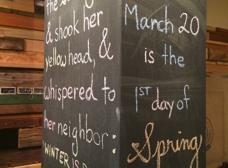 & shook her
yellow head, &
whispered to
her neighbor:
WINTER IS
March 20
is the
1ST day of
Spring